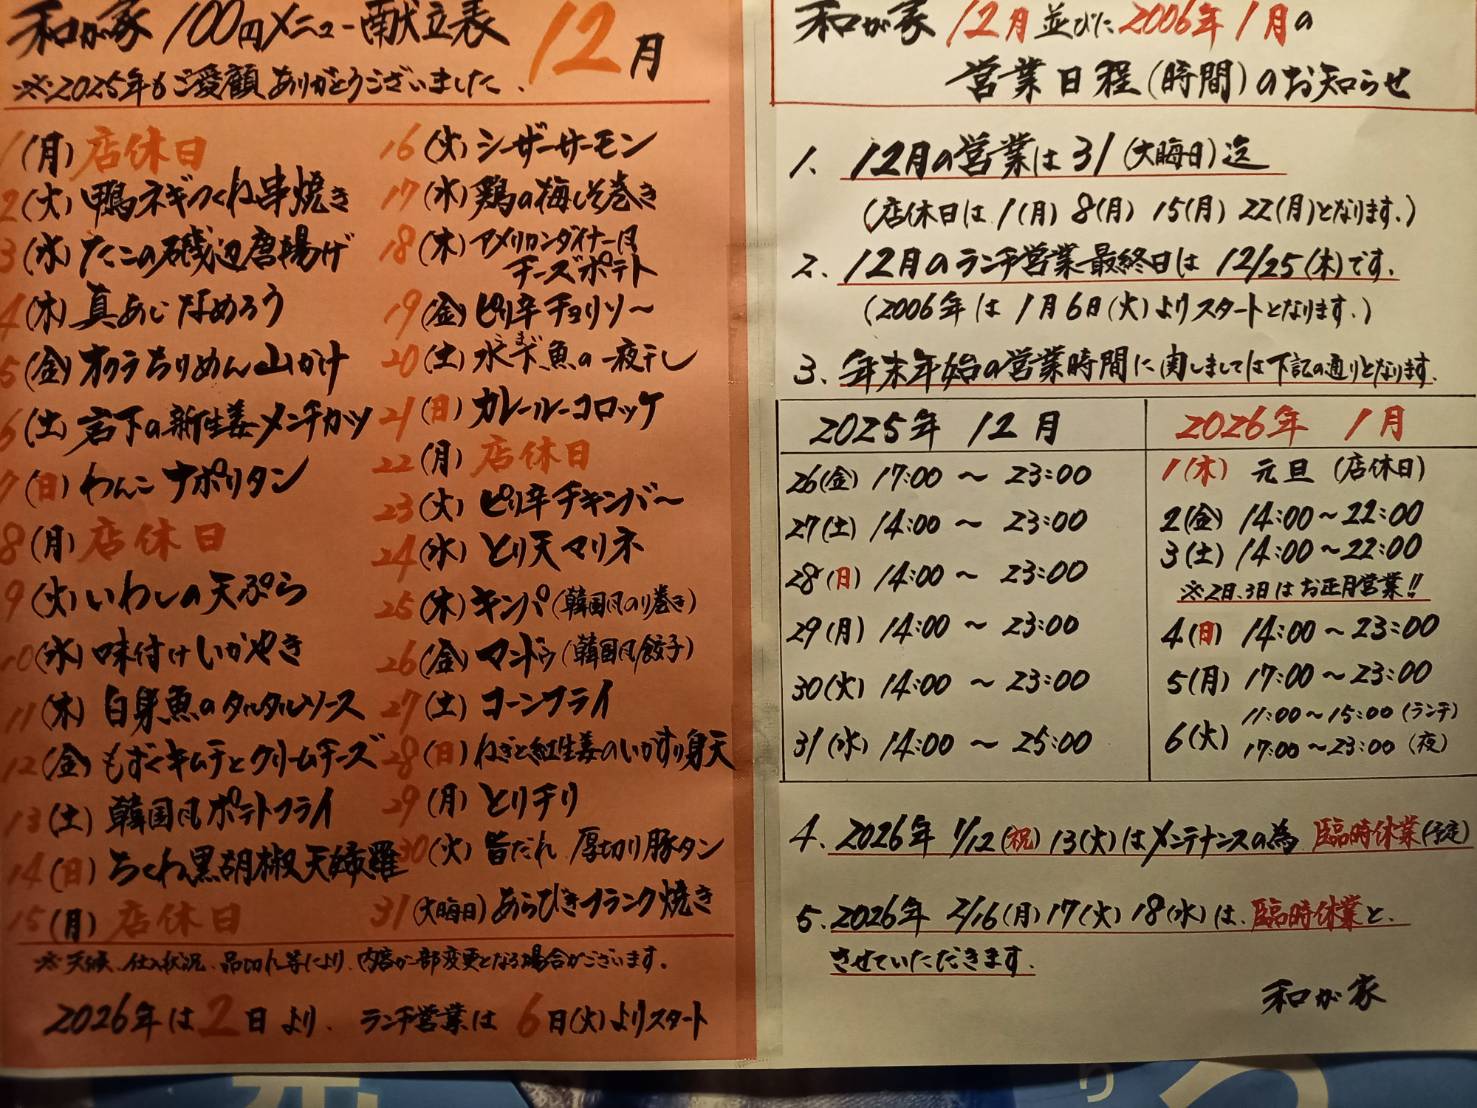 和が家 100円メニュー献立表 12月
※2025年もご愛顧ありがとうございました.
1(月)店休日
2(火)鴨ネギつくね串焼き
3(水)たこの磯辺唐揚げ
4(木)真あじなめろう
5(金)オクラちりめん山かけ
6(土)岩下の新生姜メンチカツ
7(日)わんこナポリタン
8(月)店休日
9(火)いわしの天ぷら
10(水)味付けいかやき
11(木)白身魚のタルタルソース
12(金)もずくキムチとクリームチーズ
13(土)韓国風ポテトフライ
14(日)ちくわ黒胡椒天婦羅
15(月)店休日
16(火)シーザーサーモン
17(水)鶏の梅しそ巻き
18(木)アメリカンダイナー風
チーズポテト
19(金)ピリ辛チョリソ～
20(土)氷下魚の一夜干し
こまい
21(日)カレールーコロッケ
22(月)店休日
23(火)ピリ辛チキンバ～
24(水)とり天マリネ
25(木)キンパ(韓国風のり巻き)
26(金)マンドゥ(韓国風餃子)
27(土)コーンフライ
28(日)ねぎと紅生姜のいかすり身天
29(月)とりチリ
30(火)旨だれ 厚切り豚タン
31(大晦日)あらびきフランク焼き
※天候、仕入状況、品切れ等により、内容が一部変更となる場合がございます.
2026年は2日より、ランチ営業は6日(火)よりスタート
和が家 12月並びに2006年1月の
営業日程(時間)のお知らせ
1. 12月の営業は31(大晦日)迄
(店休日は1(月)8(月)15(月)22(月)となります.)
2. 12月のランチ営業最終日は12/25(木)です.
(2006年は1月6日(火)よりスタートとなります.)
3. 年末年始の営業時間に関しましては下記の通りとなります.
2025年 12月
26(金)17:00～23:00
27(土)14:00～23:00
28(日)14:00～23:00
29(月)14:00～23:00
30(火)14:00～23:00
31(水)14:00～25:00
2026年 1月
1(木) 元旦 (店休日)
2(金) 14:00～22:00
3(土) 14:00～22:00
※2日、3日はお正月営業!!
4(日) 14:00～23:00
5(月) 17:00～23:00
6(火) 11:00～15:00(ランチ)
17:00～23:00(夜)
4. 2026年 1/12(祝)13(火)はメンテナンスの為 臨時休業(予定)
5. 2026年 2/16(月)17(火)18(水)は、臨時休業と、
させていただきます.
和が家